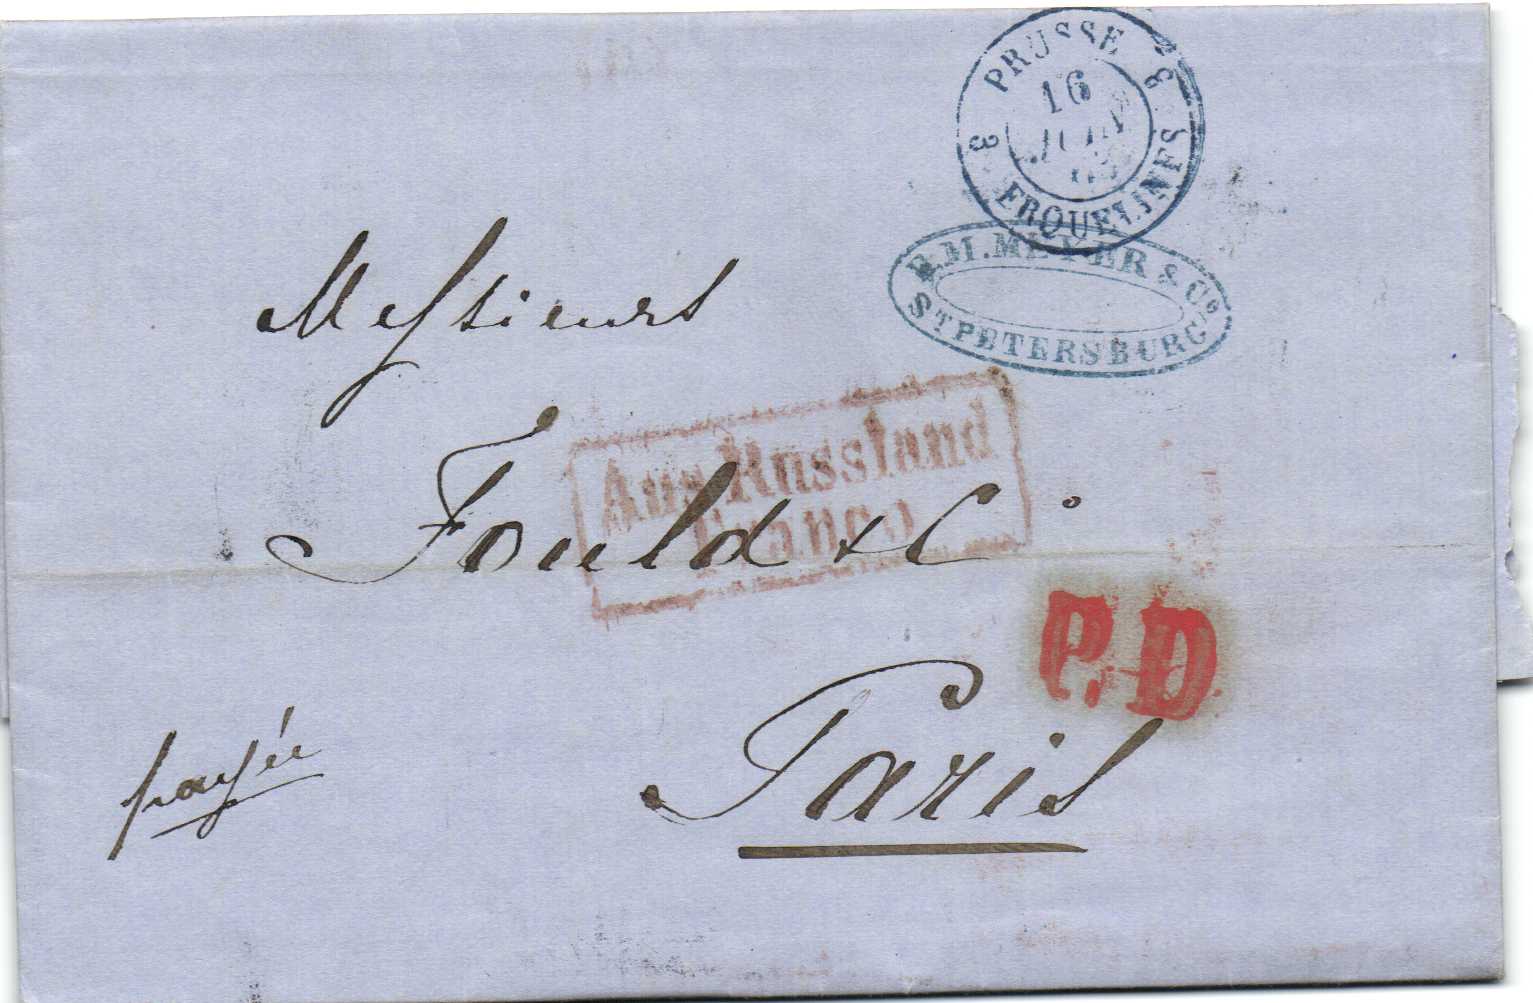 PRUSSE
3 3
16
JUIN
ERQUELINES
E.M. MEYER & Co
ST PETERSBURG
Messieurs
Aus Russland
Franco
Fould & Co
P.D.
payée
Paris